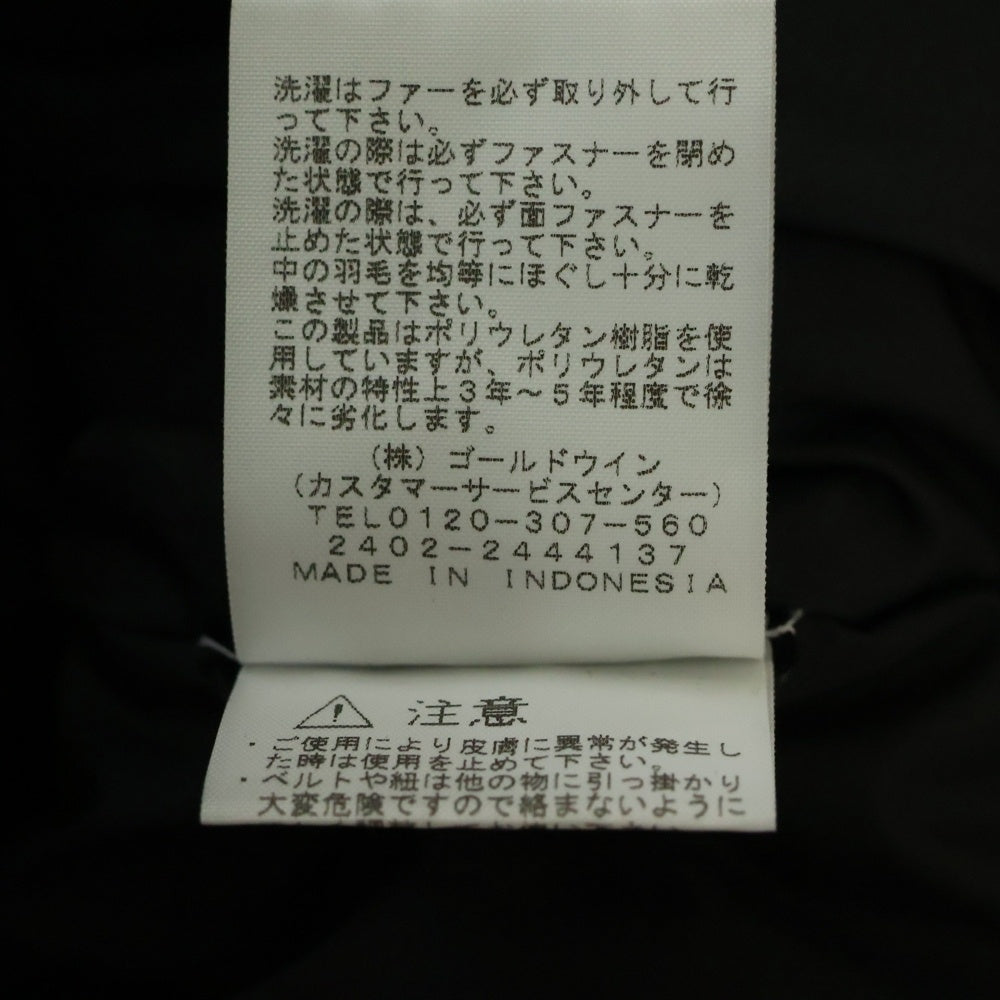 洗濯はファーを必ず取り外して行
って下さい。
洗濯の際は必ずファスナーを閉め
た状態で行って下さい。
洗濯の際は、必ず面ファスナーを
止めた状態で行って下さい。
中の羽毛を均等にほぐし十分に乾
燥させて下さい。
この製品はポリウレタン樹脂を使
用していますが、ポリウレタンは
素材の特性上3年～5年程度で徐
々に劣化します。
(株)ゴールドウイン
(カスタマーサービスセンター)
TEL0120-307-560
2402-2444137
MADE IN INDONESIA
注意
・ご使用により皮膚に異常が発生し
た時は使用を止めて下さい。
・ベルトや紐は他の物に引っ掛かり
大変危険ですので絡まないように